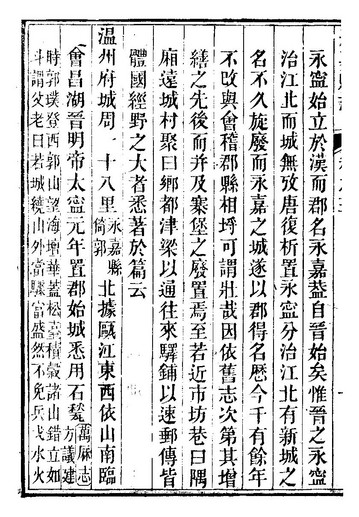 永寧始立於漢而郡名永嘉葢自晉始矣惟晉之永寧
治江北而城無攷唐復析置永寧分治江北有新城之
名不久旋廢而永嘉之城遂以郡得名歷今千有餘年
不改與會稽郡縣相埒可謂壯哉因依舊志次第其增
繕之先後而并及寨堡之廢置焉至若近市坊巷曰隅
廂遠城村聚曰鄉都津梁以通往來驛鋪以速郵傳皆
體國經野之大者悉著於篇云
溫州府城周一十八里
永嘉縣
倚郭
北據甌江東西依山南臨
會昌湖晉明帝太寧元年置郡始城悉用石甃
萬厤志
方議建
時郭璞登西郭山望海壇華蓋松臺積穀諸山錯立如
斗謂父老曰若城繞山外當驟富盛然不免兵戈水火